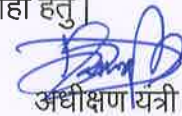 हेतु।
अधीक्षण यंत्री